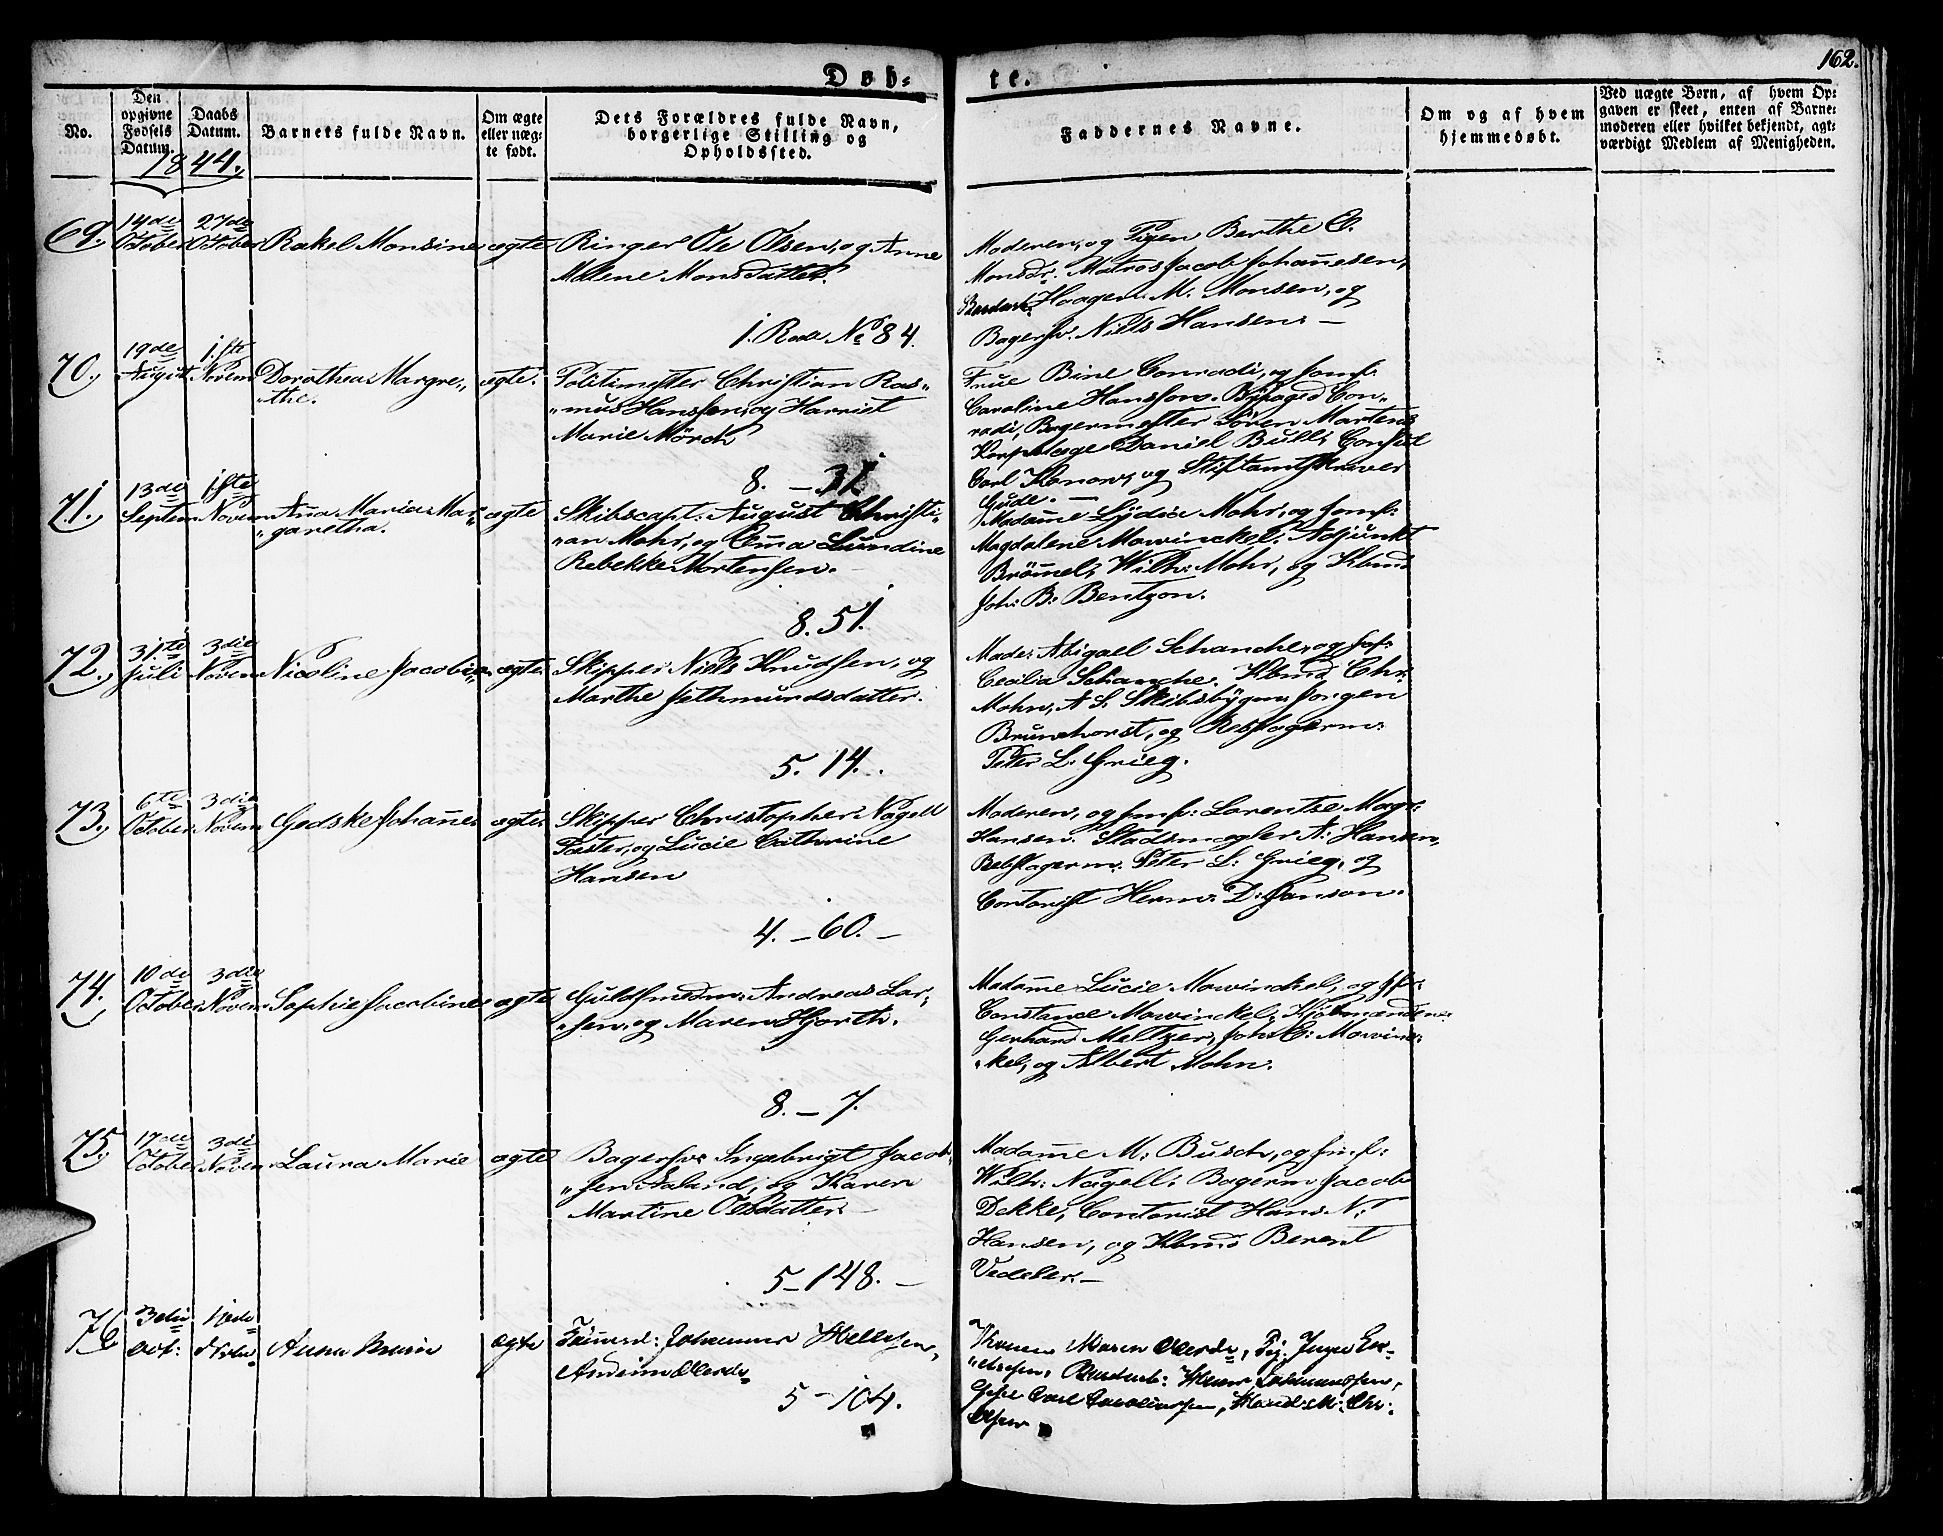 162.
Døb-
te.
No.
Den opgivne Fødsels Datum.
Daabs Datum.
1844.
Barnets fulde Navn.
Om ægte eller uægte født.
Dets Forældres fulde Navn, borgerlige Stilling og Opholdssted.
Faddernes Navne.
Om og af hvem hjemmedøbt.
Ved uægte Børn, af hvem Opgaven er skeet, enten af Barnemoderen eller hvilket bekjendt, agtværdigt Medlem af Menigheden.
69. 14de October 27de October Rakel Monsine ægte Ringer Ole Olsen, og Anne
Milene Monsdatter.
1. Rode No 84.
Moderen, og Pigen Berthe O.
Monsdr. Matros Jacob Johannesen,
Haagen M. Monsen, og
Bagersv. Niels Hansen. —
70. 19de August 1ste Novem Dorothea Margre-
the.
ægte. Politimester Christian Ras-
mus Hanssen, og Harriet
Marie Mörch
8. — 31
Frue Bine Conradi, og Jomf.
Caroline Hansson. Byfoged Con-
radi, Borgermester Sören Martens
Korpslæge Daniel Bull, Consul
Carl Konow, og Stiftamtskriver
Gude. —
71. 13de Septem 1ste Novem Ana Maria Mar-
garetha.
ægte Skibscapt: August Christi-
an Mohr, og Ema Lundine
Rebekke Mortensen.
8. 51.
Madame Lydia Mohr, og Jomf:
Magdalene Mowinckel. Adjunkt
Brömel, Wilh: Mohr, og Kbmd
Joh: B: Bentzon.
72. 31te Juli 3die Novem Nicoline Jacobine ægte Skipper Niels Knudsen, og
Marthe Jethmundsdatter.
5. 14.
Made: Abigael Schanche, og Jof:
Cecilia Schanche. Kbmd Chr:
Mohn, A. S. Skibsbygm: Jörgen
Brunchorst, og Rebslagerm:
Peter L. Grieg.
73. 6te October 3die Novem Gedske Johanne ægte Skipper Christopher Nagell
Foster, og Lucie Cathrine
Hansen
4. — 60. —
Moderen, og Jmf: Lorentse Magr:
Hansen. Stadsmægler A: Hansen,
Rebslagerm: Peter L: Grieg, og
Contorist Herm: D: Janson.
74. 10de October 3die Novem Sophie Jacobine ægte Guldsmedm: Andreas Lar-
sen, og Maren Hjorth.
8. — 7.
Madame Lucie Mowinckel, og Jf:
Constance Mowinckel. Kjöbmændene
Gerhard Meltzer, Joh: E: Mowinc-
kel, og Albert Mohn.
75. 17de October 3die Novem Laura Marie ægte Bagersv: Ingebrigt Jacob-
sen Aaland, og Karen
Martine Olsdatter.
5 — 148. —
Madame M: Busch, og Jmf:
Wilh: Nagell. Bagerm: Jacob
Dekke, Contorist Hans N:
Hansen, og Kbmd Berent
Vedeler. —
76 3die Oct: Anna ægte Tömmd: Johannes
5 — 104.
Konen Maren Pig. Inger
Carl
Olsen